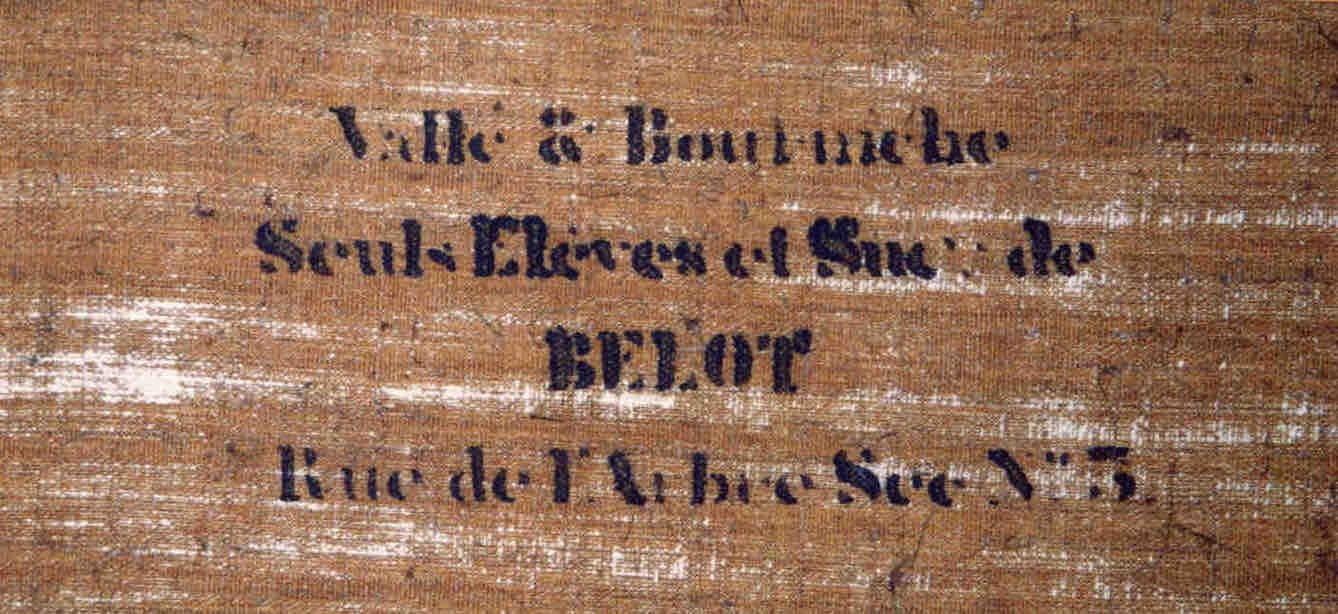 Vallé & Bourniche
Seuls Elèves et Succ de
BELOT
Rue de l'Arbre Sec N° 3.